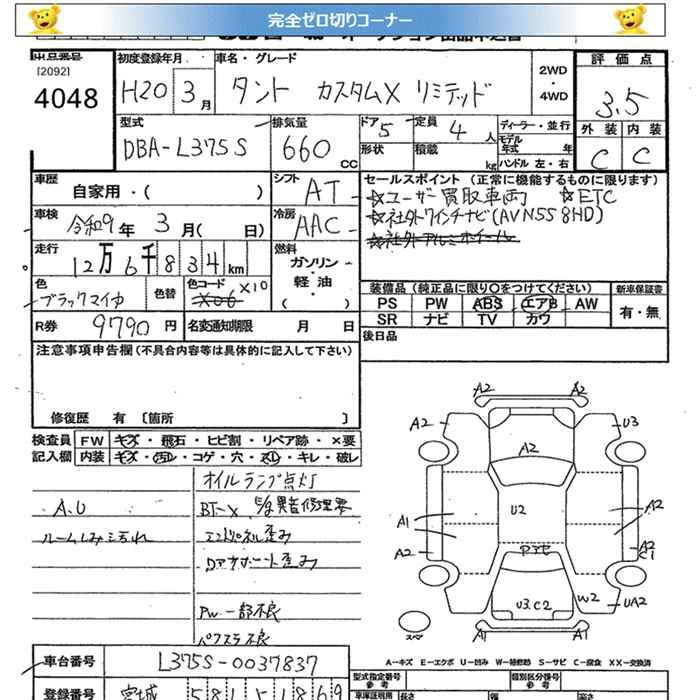 完全ゼロ切りコーナー
[2092]
4048
初度登録年月
H20 3月
車名・グレード
タント カスタムX リミテッド
2WD
・
4WD
評価点
3.5
外装 内装
C C
型式
DBA-L375S
排気量
660 CC
ドア 5
形状
定員 4 人
積載 kg
ディーラー・並行
モデル年式 年
ハンドル 左・右
車歴
自家用・( )
シフト
AT
車検
令和9年 3月( 日)
冷房
AAC
走行
12万6千834km
燃料
ガソリン
・
軽油
( )
色
ブラックマイカ
色替
色コード
X06 X10
R券 9790円
名変通知期限 月 日
セールスポイント (正常に機能するものに限ります)
☆ユーザー買取車両 ☆ETC
☆社外ワインチナビ(AVN558HD)
☆社外アルミホイール
装備品(純正品に限り〇をつけてください)
PS PW ABS エアB AW
SR ナビ TV カワ
新車保証書
有・無
後日品
注意事項申告欄(不具合内容等は具体的に記入して下さい)
修復歴 有 〔箇所 〕
検査員記入欄
FW キズ・飛石・ヒビ割・リペア跡・×要
内装 キズ・汚れ・コゲ・穴・スレ・キレ・破レ
オイルランプ点灯
A,U
ルームしみ汚れ
BT-X
エンドパネル歪み
Dアウサポート歪み
PW一部不良
パワステ不良
A2 A2
A2 U3
A2
A1 U2 A2
A2 A2 C1
Dアセ
U3.C2 W2 UA2
A1 A1
スペア
A-キズ E-エクボ U-凹み W-補修跡 S-サビ C-腐食 XX-交換済
車台番号 L375S-0037837
型式指定番号 参考
類別区分番号 参考
登録番号 宮城 581 い 1869
車庫証明用 長さ 幅 高さ